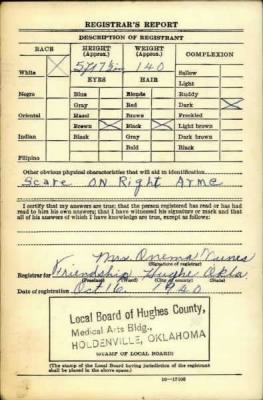 REGISTRAR'S REPORT
DESCRIPTION OF REGISTRANT
RACE HEIGHT (Approx.) WEIGHT (Approx.) COMPLEXION
5ft 7in 140
White Sallow
EYES HAIR Light
Negro Blue Blonde Ruddy
Gray Red Dark X
Oriental Hazel Brown Freckled
Brown X Black X Light brown
Indian Black Gray Dark brown
Bald Black
Filipino
Other obvious physical characteristics that will aid in identification
Scare ON Right Arme
I certify that my answers are true; that the person registered has read or has had
read to him his own answers; that I have witnessed his signature or mark and that
all of his answers of which I have knowledge are true, except as follows:
Mrs. Onema Nunes
(Signature of registrar)
Registrar for Friendship Hughe Okla
(Precinct) (State)
Date of registration Oct 16 1940
Local Board of Hughes County,
Medical Arts Bldg.,
HOLDENVILLE, OKLAHOMA
(STAMP OF LOCAL BOARD)
(The stamp of the Local Board having jurisdiction of the registrant
shall be placed in the above space.)